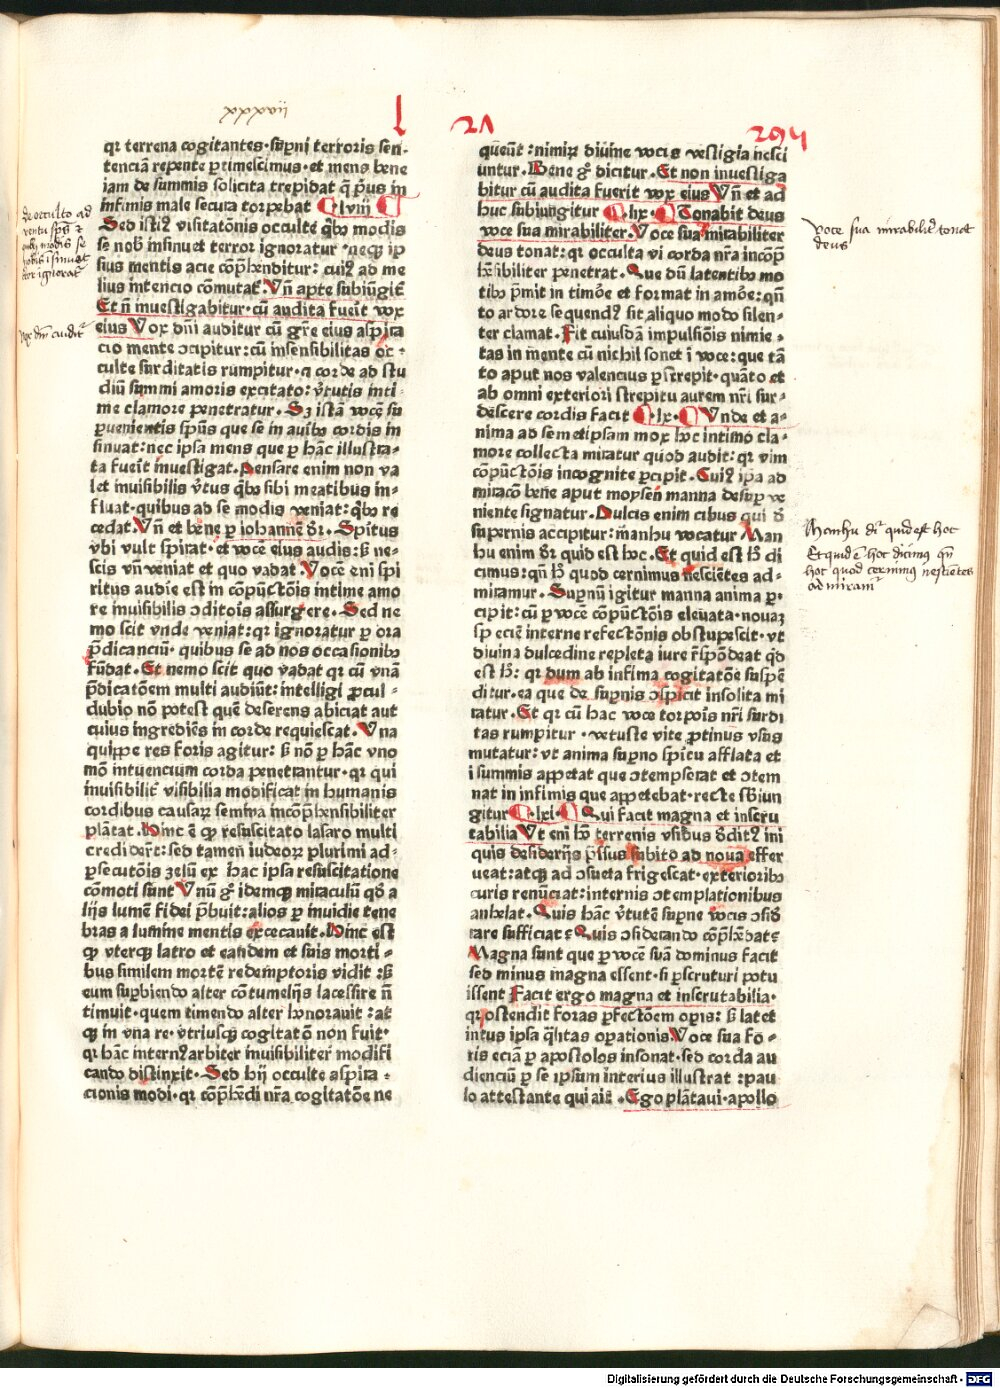 xxxvii
l
21
294
qr terrena cogitantes·sup̄ni terroris sen-
tenciā repente ꝑtimescimus·et mens bene
iam de summis solicita trepidat q̄ p̄us in
infimis male secura torpebat ·lviij·
Sed istiꝰ visitatōnis occulte q̄bꝰ modis
se nob̄ insinuet terror ignoratur·neqꝫ ip
sius mentis acie cōp̄hēnditur: cuiꝰ ad me
lius intencio cōmutat᷑. Vn̄ aꝑte subiūgit᷑
Et n̄ inuestigabitur·cū audita fue̅it vox
eius Vox dn̄i auditur cū gr̄e eius aspira
cio mente ↄcipitur: cū insensibilitas oc-
culte surditatis rumpitur·⁊ corde ad stu
diū summi amoris excitato: v̄tutis inti-
me clamore penetratur. Sꝫ istā vocē su
ꝑuenientis sp̄us que se in auibꝰ cordis in
sinuat: nec ipsa mens que ꝑ hāc illustra-
ta fue̅it inuestigat. Pensare enim non va
let inuisibilis v̄tus q̄bꝰ sibi meatibus in-
fluat·quibus ad se modis veniat: q̄bꝰ re
cedat. Vn̄ et bene ꝑ iohannē dr̄. Spiritus
vbi vult spirat·et vocē eius audis: sꝫ ne-
scis vn̄ veniat et quo vadat. Vocē eni spi
ritus audie est in cōpūctōis intime amo
re inuisibilis ↄditoīs assurgere. Sed ne
mo scit vnde veniat: qr ignoratur ꝑ ora
p̄dicanciū·quibus se ad nos occasionibꝰ
fūdat. Et nemo scit quo vadat qr cū vnā
p̄dicatōem multi audiūt: intelligi ꝓcul-
dubio nō potest quē deserens abiciat aut
cuius ingrediēs in corde requiescat. Vna
quippe res foris agitur: sꝫ nō ꝑ hāc vno
mō intuencium corda penetrantur·qr qui
inuisibilit᷑ visibilia modificat in humanis
cordibus causaꝝ semina incōp̄hēnsibiliter
plātat. Hinc ē ꝙ resuscitato lasaro multi
credidēt: sed tamen iudeoꝝ plurimi ad-
ꝑsecutōis zelū ex hac ipsa resuscitatione
cōmoti sunt Vnū gͦ idemqꝫ miraculū qd̄ a
lijs lumē fidei p̄buit: alios ꝑ inuidie tene
bras a lumine mentis excecauit. Hinc est
ꝙ vterqꝫ latro et eandem et suis morti-
bus similem mortē redemptoris vidit: sꝫ
eum supbiendo alter cōtumelijs lacessire n̄
timuit·quem timendo alter hōnorauit: at
qꝫ in vna re·vtriusqꝫ cogitatō non fuit·
qr hāc internꝰarbiter inuisibiliter modifi
cando distinxit. Sed hij occulte aspira-
cionis modi·qr cōp̄hēdi nr̄a cogitatōe ne
queūt: nimiꝝ diuine vocis vestigia nesci
untur. Bene gͦ dicitur. Et non inuestiga
bitur cū audita fuerit vox eius Vn̄ et ad
huc subiungitur ·lix· Tonabit deus
voce sua mirabiliter. Voce sua mirabiliter
deus tonat: qr occulta vi corda nr̄a incōp̄
hēsibiliter penetrat. Que dū latentibꝰ mo
tibꝰ p̄mit in timōe et format in amōe: qn̄
to ardore sequendꝰ sit aliquo modo silen-
ter clamat. Fit cuiusdā impulsiōis nimie-
tas in mente cū nichil sonet ī voce: que tā
to aput nos valencius ꝑstrepit·quāto et
ab omni exteriori strepitu aurem nr̄i sur-
descere cordis facit ·lx· Vnde et a-
nima ad semetipsam mox hōc intimo cla-
more collecta miratur quod audit: qr vim
cōpūctōis incognite ꝑcipit. Cuiꝰ ip̄a ad
miracō bene aput moysen manna desuꝑ ve
niente signatur. Dulcis enim cibus qui d̄
supernis accipitur: māhu vocatur Man
hu enim dr̄ quid est hoc. Et quid est h̄ di
cimus: qn̄ h̄ quod cernimus nesciētes ad-
miramur. Sup̄nū igitur manna anima ꝑ-
cipit: cū ꝑ vocē cōpūctōis eleuata·nouaꝫ
spēciē interne refectōnis obstupescit·vt
diuina dulcedine repleta iure rn̄deat qd̄
est h̄: qr dum ab infima cogitatōe suspē
ditur·ea que de sup̄nis ↄspicit insolita mi
ratur. Et qr cū hac voce torpoīs nr̄i surdi
tas rumpitur·vetuste vite ꝓtinus vsus
mutatur: vt anima sup̄no sp̄ritu afflata et
i summis appetat que ↄtempserat et ↄtem
nat in infimis que appetebat·recte sb̄iun
gitur ·lxi· Qui facit magna et inscru
tabilia Vt eni h̄ terrenis vsibus d̄ditꝰ ini
quis desiderijs p̄ssus subito ad noua effer
ueat: atqꝫ ad ↄsueta frigescat·exterioribꝰ
curis renūciat: internis ↄtemplationibus
anhelat. Quis hāc v̄tutē sup̄ne vocis ↄsid̄
rare sufficiat? Quis ↄsiderando cōp̄hēdat?
Magna sunt que ꝑ vocē suā dominus facit
sed minus magna essent·si ꝑscrutari potu
issent Facit ergo magna et inscrutabilia·
qr ostendit foras ꝑfectōem oꝑis: sꝫ latet
intus ipsa q̄litas opationis Voce sua fo-
ris eciā ꝑ apostolos insonat·sed corda au
dienciū ꝑ se ipsum interius illustrat: pau
lo attestante qui ait. Ego plātaui·apollo
de occulto ad
ventu sp̄s ⁊
quibꝰ modis se
nobis insinuet
vox dn̄i audit᷑
voce sua mirabilit᷑ tonat
deus
Manhu dr̄ quid est hoc
Et quid ē hoc dicimꝰ qn̄
hoc quod cernimꝰ nesciētes
admiram᷑
Digitalisierung gefördert durch die Deutsche Forschungsgemeinschaft - DFG